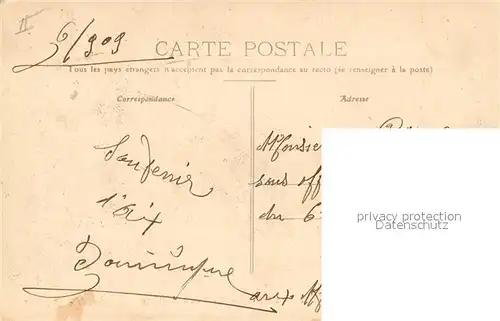 II
6/909
CARTE POSTALE
Tous les pays étrangers n'acceptent pas la correspondance au recto (se renseigner à la poste)
Correspondance
Adresse
Souvenir
d'Aix
Dominique
Monsie
sous off
du 6
aux
privacy protection
Datenschutz